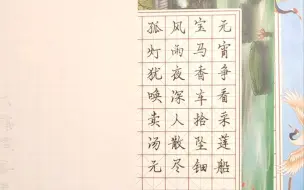 元宵争看采莲船
宝马香车拾坠钿
风雨夜深人散尽
孤灯犹唤卖汤元